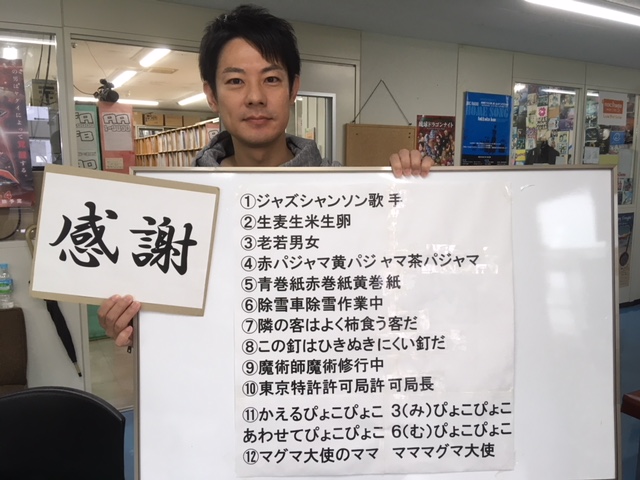 感謝
①ジャズシャンソン歌手
②生麦生米生卵
③老若男女
④赤パジャマ黄パジャマ茶パジャマ
⑤青巻紙赤巻紙黄巻紙
⑥除雪車除雪作業中
⑦隣の客はよく柿食う客だ
⑧この釘はひきぬきにくい釘だ
⑨魔術師魔術修行中
⑩東京特許許可局許可局長
⑪かえるぴょこぴょこ 3(み)ぴょこぴょこ
あわせてぴょこぴょこ 6(む)ぴょこぴょこ
⑫マグマ大使のママ ママママグマ大使